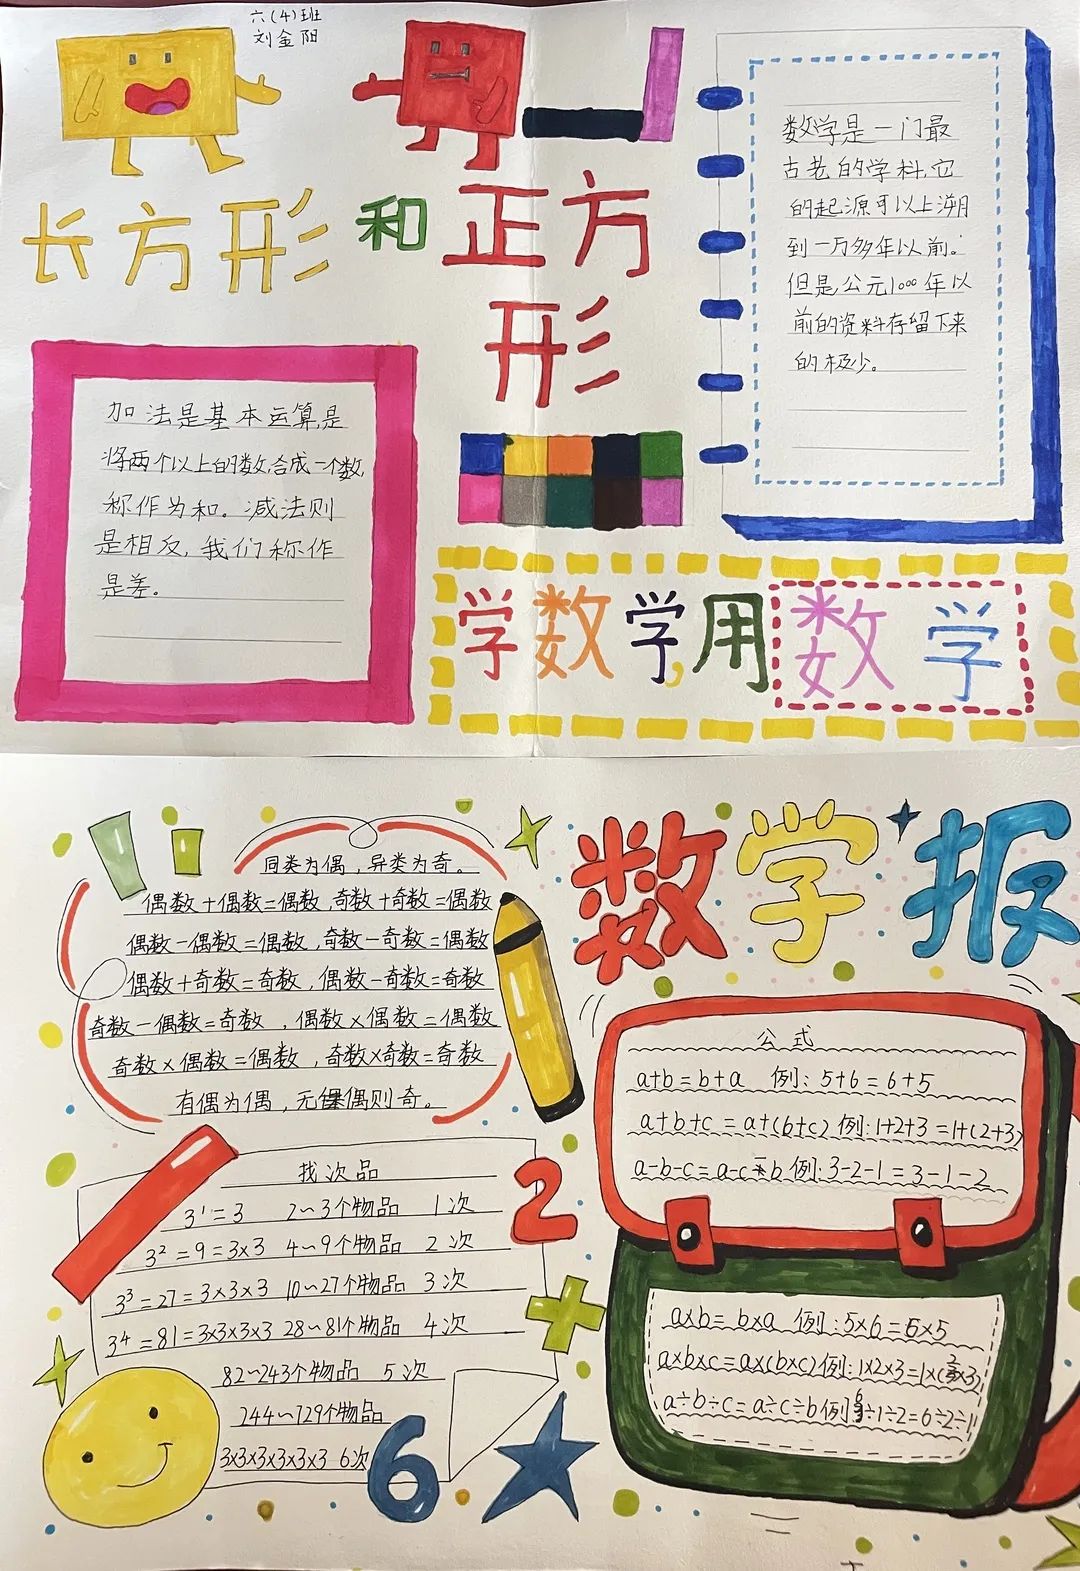 六(4)班
刘金阳
长方形和正方
形
数学是一门最
古老的学科,它
的起源可以上溯
到一万多年以前.
但是公元1000年以
前的资料存留下来
的极少。
加法是基本运算,是
将两个以上的数,合成一个数,
称作为和。减法则
是相反,我们称作
是差。
学数学,用数学
数学报
同类为偶,异类为奇。
偶数+偶数=偶数,奇数+奇数=偶数
偶数-偶数=偶数,奇数-奇数=偶数
偶数+奇数=奇数,偶数-奇数=奇数
奇数-偶数=奇数,偶数×偶数=偶数
奇数×偶数=偶数,奇数×奇数=奇数
有偶为偶,无偶则奇。
公式
a+b=b+a 例:5+6=6+5
a+b+c=a+(b+c) 例:1+2+3=1+(2+3)
a-b-c=a-c-b 例:3-2-1=3-1-2
找次品
3¹=3 2~3个物品 1次
3²=9=3×3 4~9个物品 2次
3³=27=3×3×3 10~27个物品 3次
3⁴=81=3×3×3×3 28~81个物品 4次
82~243个物品 5次
244~729个物品
3×3×3×3×3×3 6次
2
6
a×b=b×a 例:5×6=6×5
a×b×c=a×(b×c)例:1×2×3=1×(2×3)
a÷b÷c=a÷c÷b例6÷1÷2=6÷2÷1